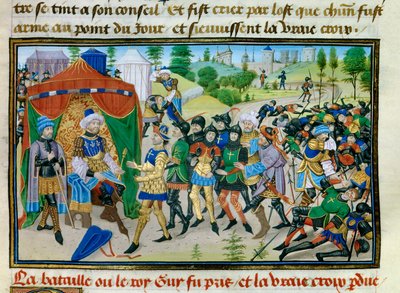 tre se tint a son conseil Et fist crier par lost que chun fust
arme au point du jour et sieuvissent la vraie croix.
La bataille ou le roy Guy fu pris et la vraie croix perdue